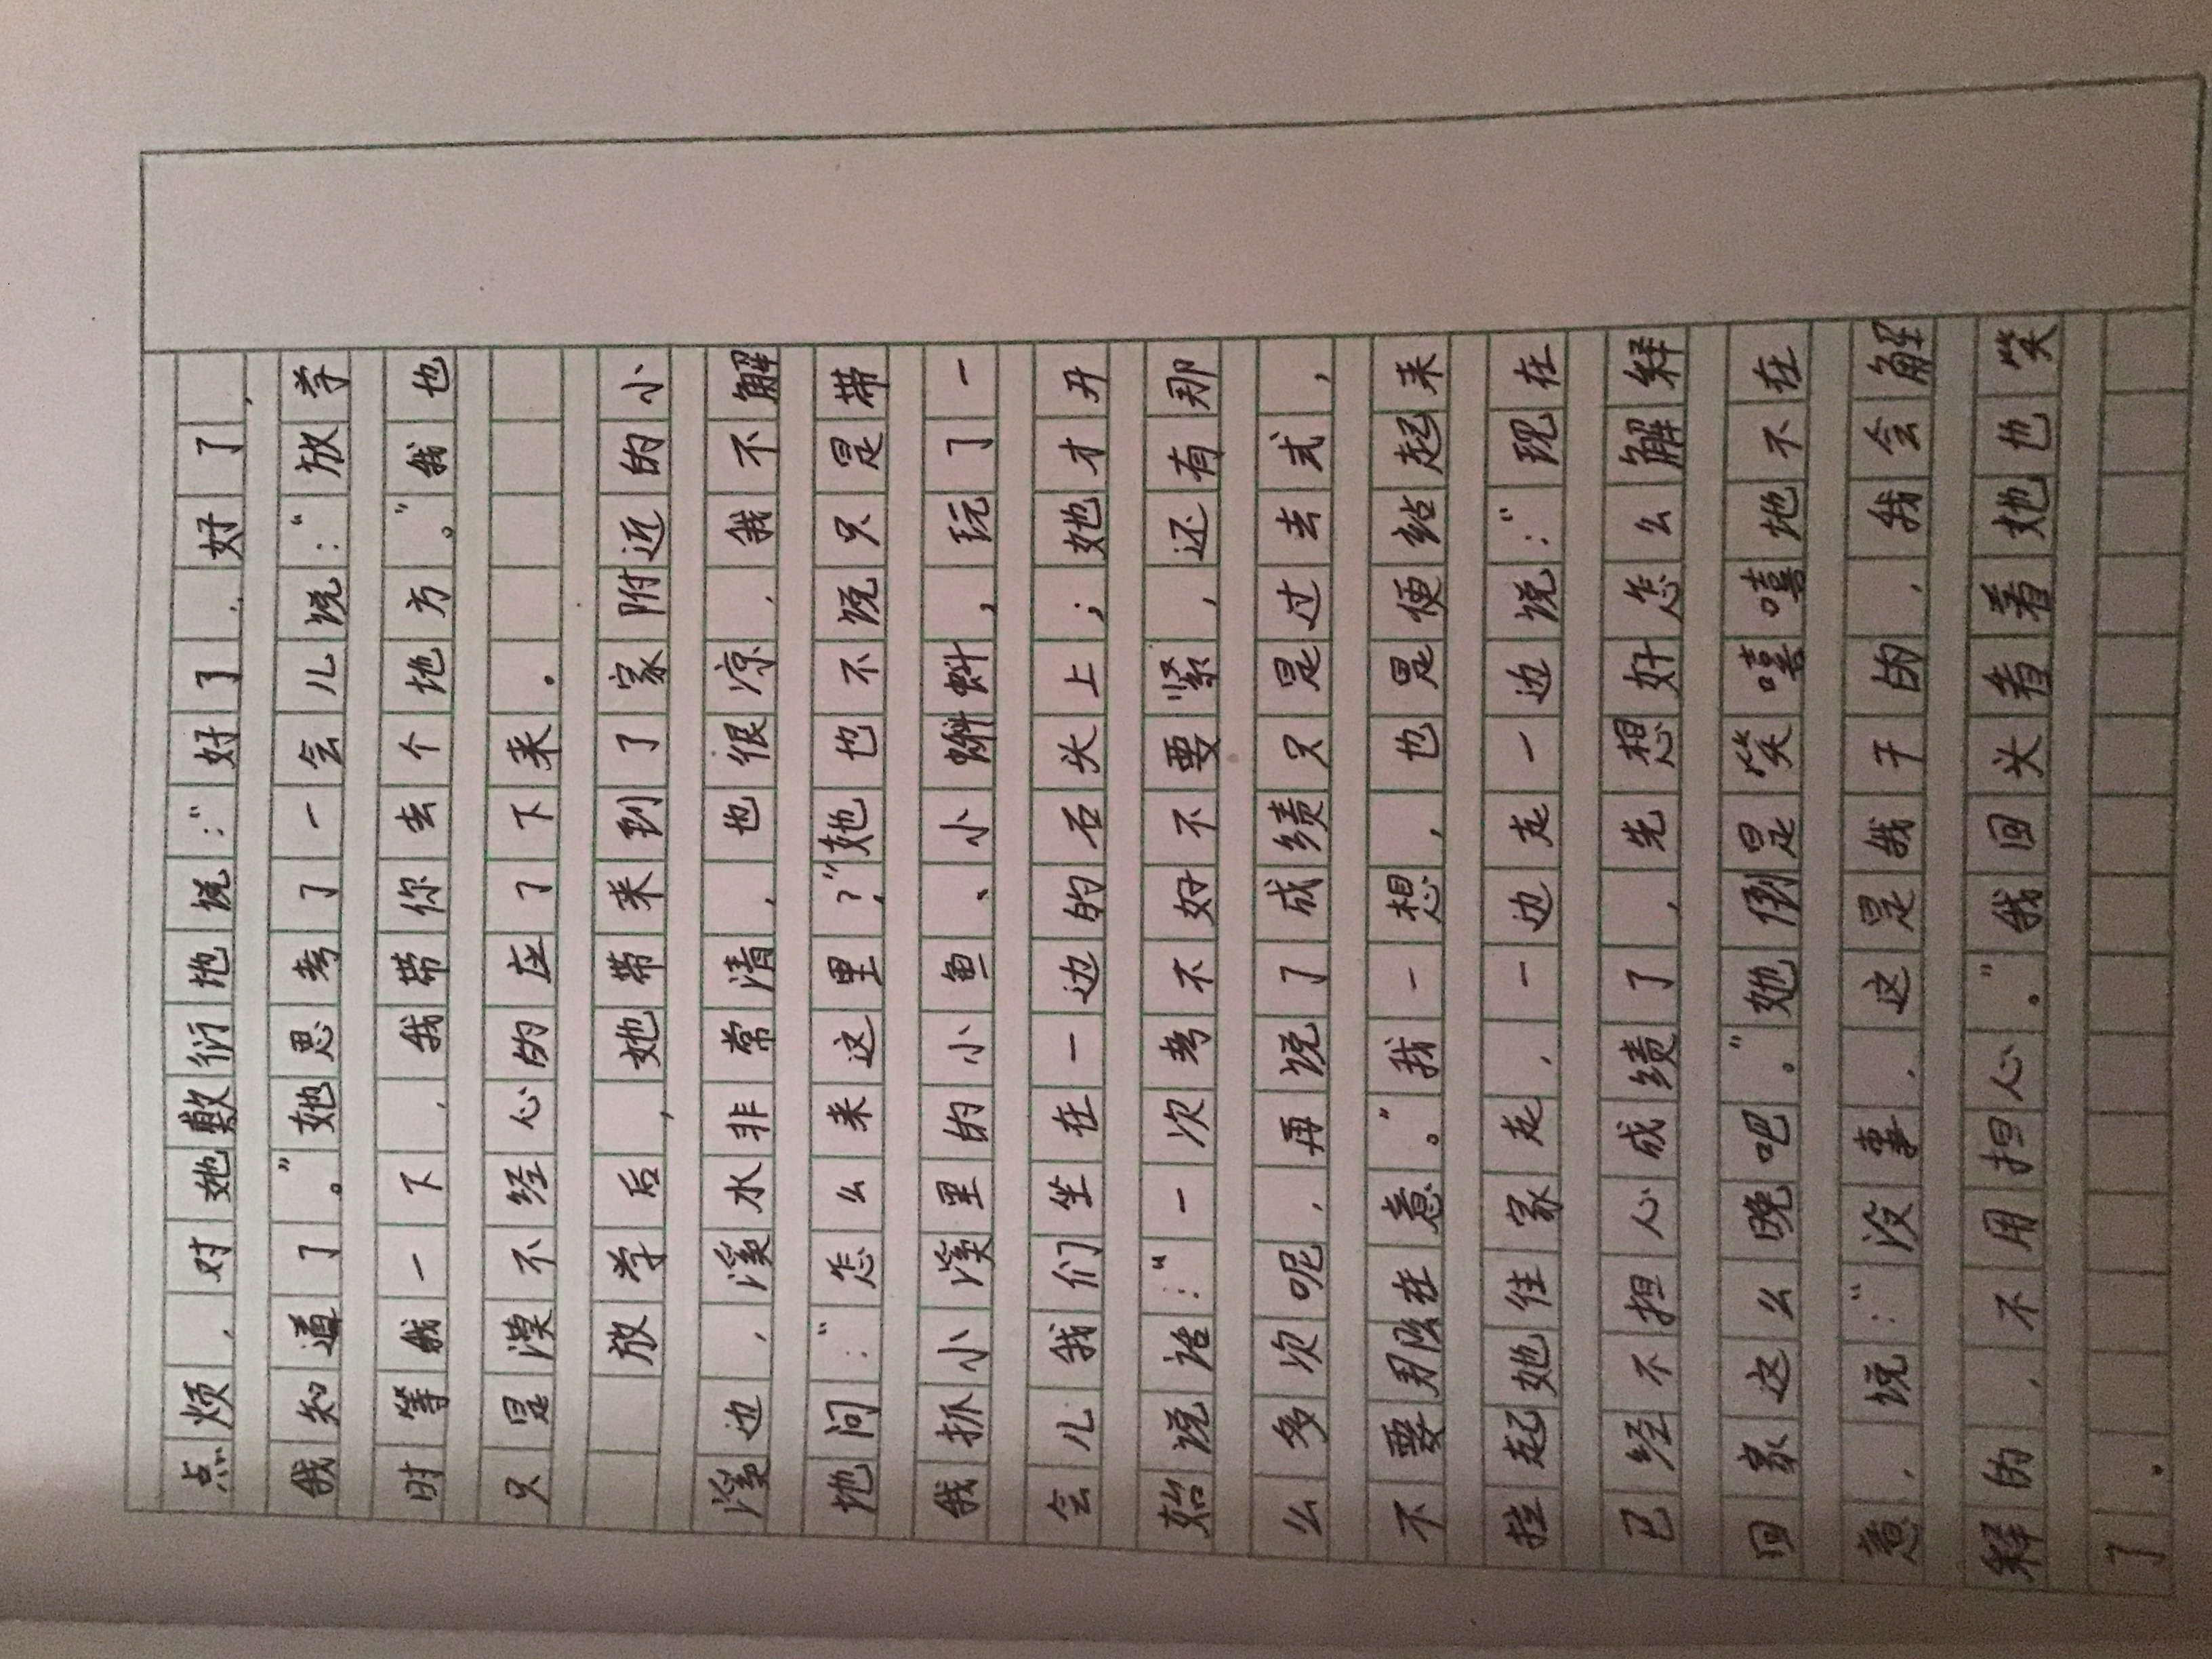 点烦，对她敷衍地说：“好了，好了，
我知道了。”她思考了一会儿说：“放学
时等我一下，我带你去个地方。”我也
只是漠不经心的应了下来。
放学后，她带来到了家附近的小
溪边，溪水非常清，也很凉，我不解
地问：“怎么来这里？”她也不说只是带
我抓小溪里的小鱼、小蝌蚪，玩了一
会儿我们坐在一边的石头上；她才开
始说话：“一次考不好不要紧，还有那
么多次呢，再说了成绩只是过去式，
不要那么在意。”我一想，也是便站起来
拉起她往家走，一边走一边说：“现在
已经不担心成绩了，先想好怎么解释
回家这么晚吧。”她倒是笑嘻嘻地不在
意，说：“没事，这是我干的，我会解
释的，不用担心。”我回头看着她也笑
了。